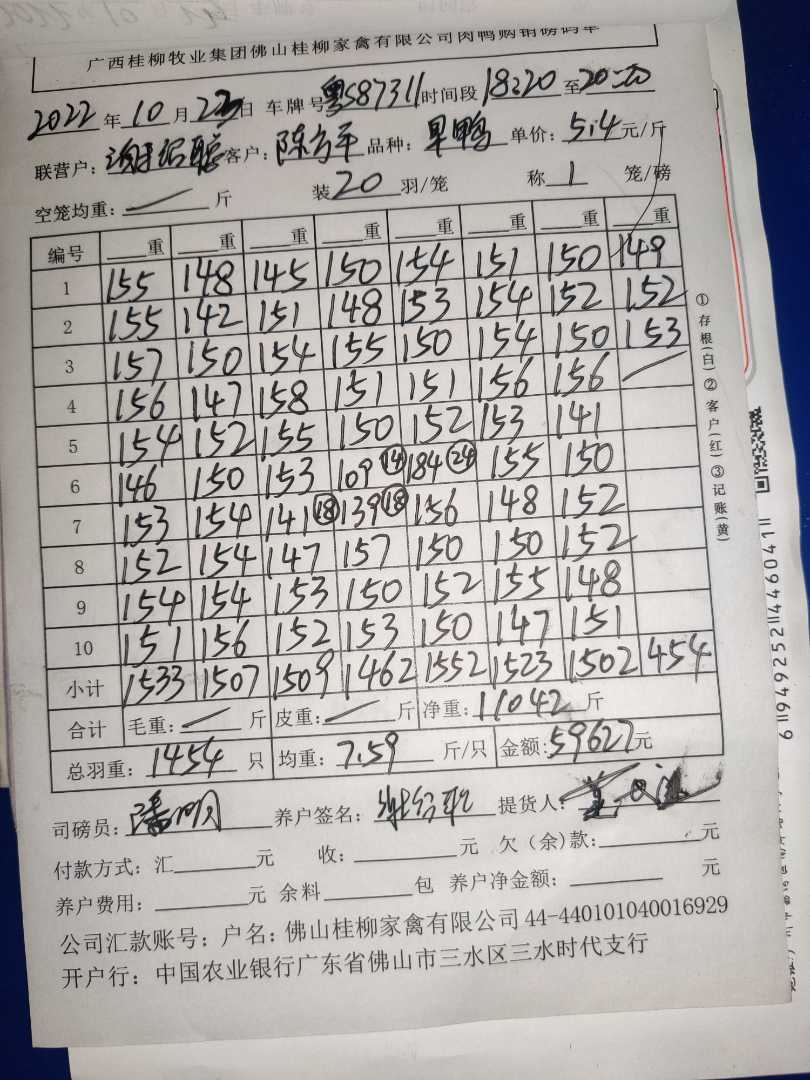 广西桂柳牧业集团佛山桂柳家禽有限公司肉鸭购销磅码单
2022年10月23日 车牌号粤S87311时间段18:20至20:20
联营户: 客户:陈方平品种:旱鸭单价:5.4元/斤
空笼均重:/斤 装20羽/笼 称1笼/磅
编号 重 重 重 重 重 重 重 重
1 155 148 145 150 154 151 150 149
2 155 142 151 148 153 154 152 152
3 157 150 154 155 150 154 150 153
4 156 147 158 151 151 156 156 /
5 154 152 155 150 152 153 141
6 146 150 153 109⑭ 184㉔ 155 150
7 153 154 141⑱ 139⑱ 156 148 152
8 152 154 147 157 150 150 152
9 154 154 153 150 152 155 148
10 151 156 152 153 150 147 151
小计 1533 1507 1509 1462 1552 1523 1502 454
合计 毛重:/斤 皮重:/斤 净重:11042斤
总羽重:1454只 均重:7.59斤/只 金额:59627元
司磅员:潘明 养户签名: 提货人:
付款方式:汇 元 收: 元 欠(余)款: 元
养户费用: 元 余料 包 养户净金额: 元
公司汇款账号:户名:佛山桂柳家禽有限公司 44-440101040016929
开户行:中国农业银行广东省佛山市三水区三水时代支行
①存根(白)②客户(红)③记账(黄)
6 949252 446041